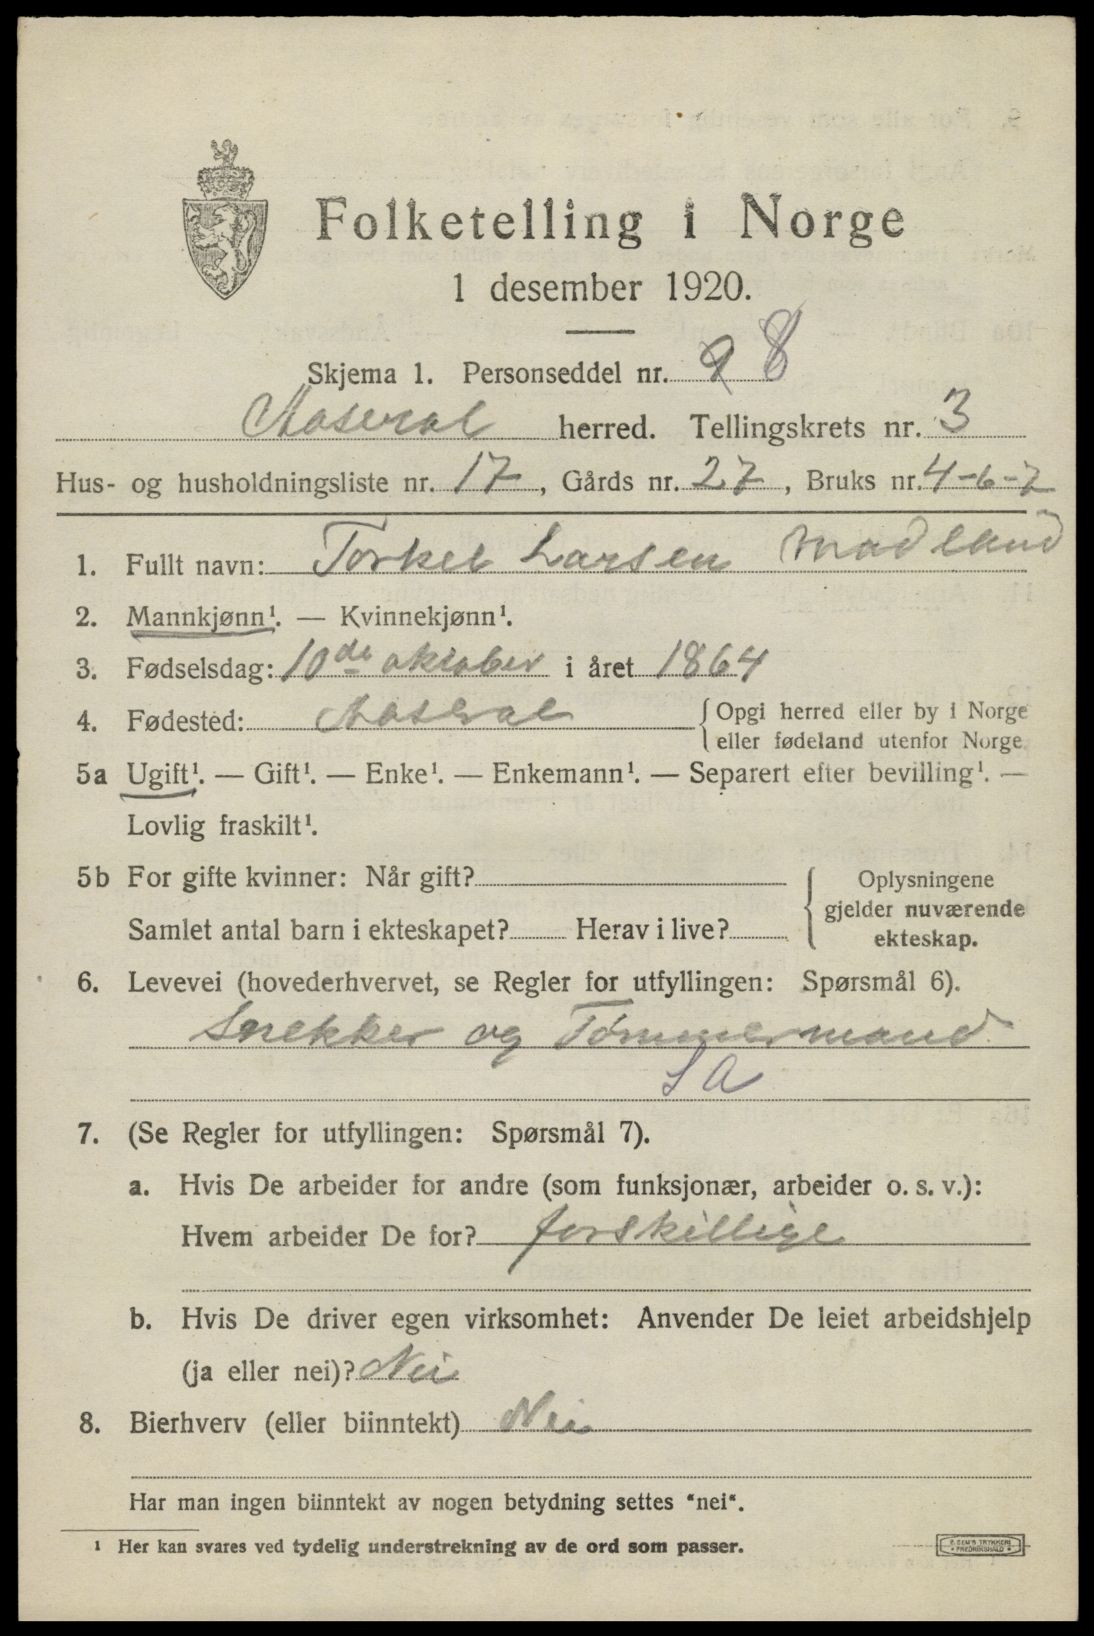 Folketelling i Norge
1 desember 1920.
Skjema 1. Personseddel nr. 9 8
Aaseral herred. Tellingskrets nr. 3
Hus- og husholdningsliste nr. 17, Gårds nr. 27, Bruks nr. 4-6-7
1. Fullt navn: Torkel Larsen Madland
2. Mannkjønn¹. — Kvinnekjønn¹.
3. Fødselsdag: 10de oktober i året 1864
4. Fødested: Aaseral { Opgi herred eller by i Norge
eller fødeland utenfor Norge
5a Ugift¹. — Gift¹. — Enke¹. — Enkemann¹. — Separert efter bevilling¹. —
Lovlig fraskilt¹.
5b For gifte kvinner: Når gift? { Oplysningene
gjelder nuværende
ekteskap.
Samlet antal barn i ekteskapet? Herav i live?
6. Levevei (hovederhvervet, se Regler for utfyllingen: Spørsmål 6).
Snekker og Tømmermand
S A
7. (Se Regler for utfyllingen: Spørsmål 7).
a. Hvis De arbeider for andre (som funksjonær, arbeider o. s. v.):
Hvem arbeider De for? forskillige
b. Hvis De driver egen virksomhet: Anvender De leiet arbeidshjelp
(ja eller nei)? Nei
8. Bierhverv (eller biinntekt) Nei
Har man ingen biinntekt av nogen betydning settes "nei".
¹ Her kan svares ved tydelig understrekning av de ord som passer.
E. SEM'S TRYKKERI
FREDRIKSHALD